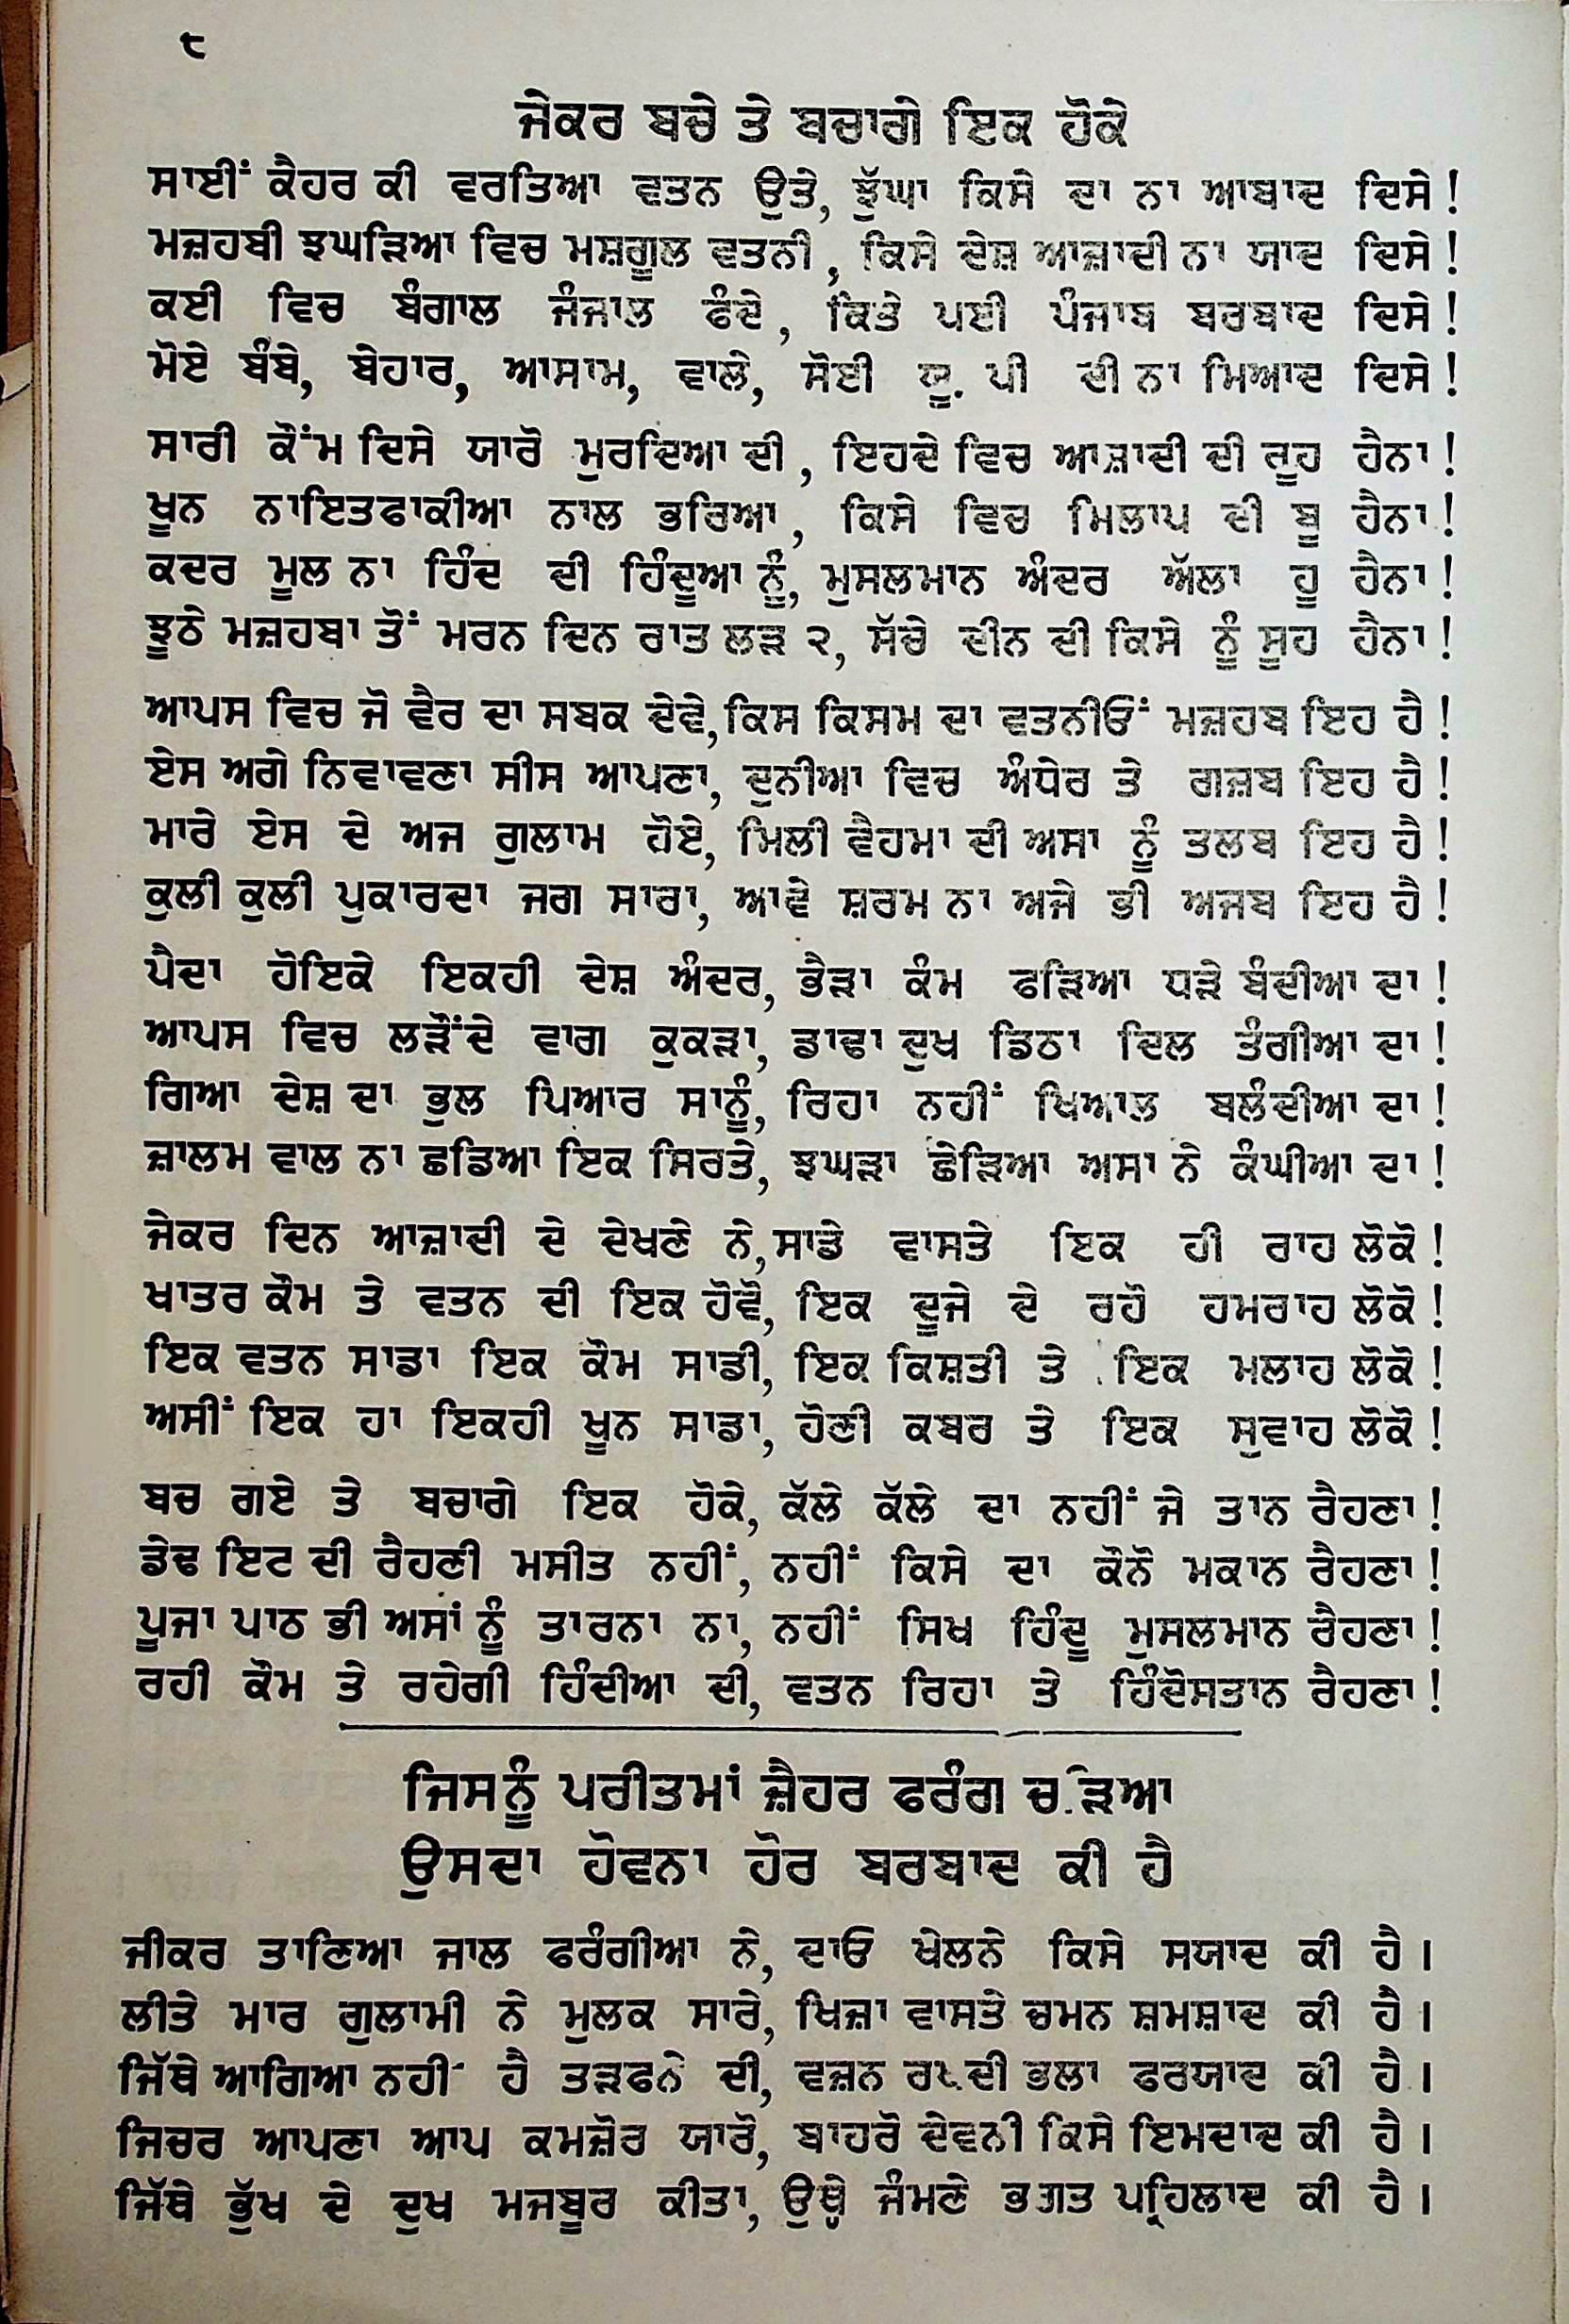 ੮
ਜੇਕਰ ਬਚੇ ਤੇ ਬਚਾਗੇ ਇਕ ਹੋਕੇ
ਸਾਈਂ ਕੈਹਰ ਕੀ ਵਰਤਿਆ ਵਤਨ ਉਤੇ, ਝੁੱਘਾ ਕਿਸੇ ਦਾ ਨਾ ਆਬਾਦ ਦਿਸੇ!
ਮਜ਼ਹਬੀ ਝਘੜਿਆ ਵਿਚ ਮਸ਼ਗੂਲ ਵਤਨੀ, ਕਿਸੇ ਦੇਸ਼ ਆਜ਼ਾਦੀ ਨਾ ਯਾਦ ਦਿਸੇ!
ਕਈ ਵਿਚ ਬੰਗਾਲ ਜੰਜਾਲ ਫੰਦੇ, ਕਿਤੇ ਪਈ ਪੰਜਾਬ ਬਰਬਾਦ ਦਿਸੇ!
ਮੋਏ ਬੰਬੇ, ਬੇਹਾਰ, ਆਸਾਮ, ਵਾਲੇ, ਸੋਈ ਯੂ. ਪੀ ਦੀ ਨਾ ਮਿਆਦ ਦਿਸੇ!
ਸਾਰੀ ਕੌਂਮ ਦਿਸੇ ਯਾਰੋ ਮੁਰਦਿਆ ਦੀ, ਇਹਦੇ ਵਿਚ ਆਜ਼ਾਦੀ ਦੀ ਰੂਹ ਹੈਨਾ!
ਖੂਨ ਨਾਇਤਫਾਕੀਆ ਨਾਲ ਭਰਿਆ, ਕਿਸੇ ਵਿਚ ਮਿਲਾਪ ਦੀ ਬੂ ਹੈਨਾ!
ਕਦਰ ਮੂਲ ਨਾ ਹਿੰਦ ਦੀ ਹਿੰਦੂਆ ਨੂੰ, ਮੁਸਲਮਾਨ ਅੰਦਰ ਅੱਲਾ ਹੂ ਹੈਨਾ!
ਝੂਠੇ ਮਜ਼ਹਬਾ ਤੋਂ ਮਰਨ ਦਿਨ ਰਾਤ ਲੜ ੨, ਸੱਚੇ ਦੀਨ ਦੀ ਕਿਸੇ ਨੂੰ ਸੂਹ ਹੈਨਾ!
ਆਪਸ ਵਿਚ ਜੋ ਵੈਰ ਦਾ ਸਬਕ ਦੇਵੇ, ਕਿਸ ਕਿਸਮ ਦਾ ਵਤਨੀਓਂ ਮਜ਼ਹਬ ਇਹ ਹੈ!
ਏਸ ਅਗੇ ਨਿਵਾਵਣਾ ਸੀਸ ਆਪਣਾ, ਦੁਨੀਆ ਵਿਚ ਅੰਧੇਰ ਤੇ ਗਜ਼ਬ ਇਹ ਹੈ!
ਮਾਰੇ ਏਸ ਦੇ ਅਜ ਗੁਲਾਮ ਹੋਏ, ਮਿਲੀ ਵੈਹਮਾ ਦੀ ਅਸਾ ਨੂੰ ਤਲਬ ਇਹ ਹੈ!
ਕੁਲੀ ਕੁਲੀ ਪੁਕਾਰਦਾ ਜਗ ਸਾਰਾ, ਆਵੇ ਸ਼ਰਮ ਨਾ ਅਜੇ ਭੀ ਅਜਬ ਇਹ ਹੈ!
ਪੈਦਾ ਹੋਇਕੇ ਇਕਹੀ ਦੇਸ਼ ਅੰਦਰ, ਭੈੜਾ ਕੰਮ ਫੜਿਆ ਧੜੇ ਬੰਦੀਆ ਦਾ!
ਆਪਸ ਵਿਚ ਲੜੌਂਦੇ ਵਾਗ ਕੁਕੜਾ, ਡਾਢਾ ਦੁਖ ਡਿਠਾ ਦਿਲ ਤੰਗੀਆ ਦਾ!
ਗਿਆ ਦੇਸ਼ ਦਾ ਭੁਲ ਪਿਆਰ ਸਾਨੂੰ, ਰਿਹਾ ਨਹੀਂ ਖਿਆਲ ਬਲੰਦੀਆ ਦਾ!
ਜ਼ਾਲਮ ਵਾਲ ਨਾ ਛਡਿਆ ਇਕ ਸਿਰਤੇ, ਝਘੜਾ ਛੇੜਿਆ ਅਸਾ ਨੇ ਕੰਘੀਆ ਦਾ!
ਜੇਕਰ ਦਿਨ ਆਜ਼ਾਦੀ ਦੇ ਦੇਖਣੇ ਨੇ, ਸਾਡੇ ਵਾਸਤੇ ਇਕ ਹੀ ਰਾਹ ਲੋਕੋ!
ਖਾਤਰ ਕੌਮ ਤੇ ਵਤਨ ਦੀ ਇਕ ਹੋਵੋ, ਇਕ ਦੂਜੇ ਦੇ ਰਹੋ ਹਮਰਾਹ ਲੋਕੋ!
ਇਕ ਵਤਨ ਸਾਡਾ ਇਕ ਕੌਮ ਸਾਡੀ, ਇਕ ਕਿਸ਼ਤੀ ਤੇ ਇਕ ਮਲਾਹ ਲੋਕੋ!
ਅਸੀਂ ਇਕ ਹਾ ਇਕਹੀ ਖੂਨ ਸਾਡਾ, ਹੋਣੀ ਕਬਰ ਤੇ ਇਕ ਸੁਵਾਹ ਲੋਕੋ!
ਬਚ ਗਏ ਤੇ ਬਚਾਗੇ ਇਕ ਹੋਕੇ, ਕੱਲੇ ਕੱਲੇ ਦਾ ਨਹੀਂ ਜੇ ਤਾਨ ਰੈਹਣਾ!
ਡੇਢ ਇਟ ਦੀ ਰੈਹਣੀ ਮਸੀਤ ਨਹੀਂ, ਨਹੀਂ ਕਿਸੇ ਦਾ ਕੌਨੋ ਮਕਾਨ ਰੈਹਣਾ!
ਪੂਜਾ ਪਾਠ ਭੀ ਅਸਾਂ ਨੂੰ ਤਾਰਨਾ ਨਾ, ਨਹੀਂ ਸਿਖ ਹਿੰਦੂ ਮੁਸਲਮਾਨ ਰੈਹਣਾ!
ਰਹੀ ਕੌਮ ਤੇ ਰਹੇਗੀ ਹਿੰਦੀਆ ਦੀ, ਵਤਨ ਰਿਹਾ ਤੇ ਹਿੰਦੋਸਤਾਨ ਰੈਹਣਾ!
ਜਿਸਨੂੰ ਪਰੀਤਮਾਂ ਜ਼ੈਹਰ ਫਰੰਗ ਚੜਿਆ
ਉਸਦਾ ਹੋਵਨਾ ਹੋਰ ਬਰਬਾਦ ਕੀ ਹੈ
ਜੀਕਰ ਤਾਣਿਆ ਜਾਲ ਫਰੰਗੀਆ ਨੇ, ਦਾਓ ਖੇਲਨੇ ਕਿਸੇ ਸਯਾਦ ਕੀ ਹੈ।
ਲੀਤੇ ਮਾਰ ਗੁਲਾਮੀ ਨੇ ਮੁਲਕ ਸਾਰੇ, ਖਿਜ਼ਾ ਵਾਸਤੇ ਚਮਨ ਸ਼ਮਸ਼ਾਦ ਕੀ ਹੈ।
ਜਿੱਥੇ ਆਗਿਆ ਨਹੀਂ ਹੈ ਤੜਫਨੇ ਦੀ, ਵਜ਼ਨ ਰਖਦੀ ਭਲਾ ਫਰਯਾਦ ਕੀ ਹੈ।
ਜਿਚਰ ਆਪਣਾ ਆਪ ਕਮਜ਼ੋਰ ਯਾਰੋ, ਬਾਹਰੋ ਦੇਵਨੀ ਕਿਸੇ ਇਮਦਾਦ ਕੀ ਹੈ।
ਜਿੱਥੇ ਭੁੱਖ ਦੇ ਦੁਖ ਮਜਬੂਰ ਕੀਤਾ, ਉਥੇ ਜੰਮਣੇ ਭਗਤ ਪ੍ਰਹਿਲਾਦ ਕੀ ਹੈ।